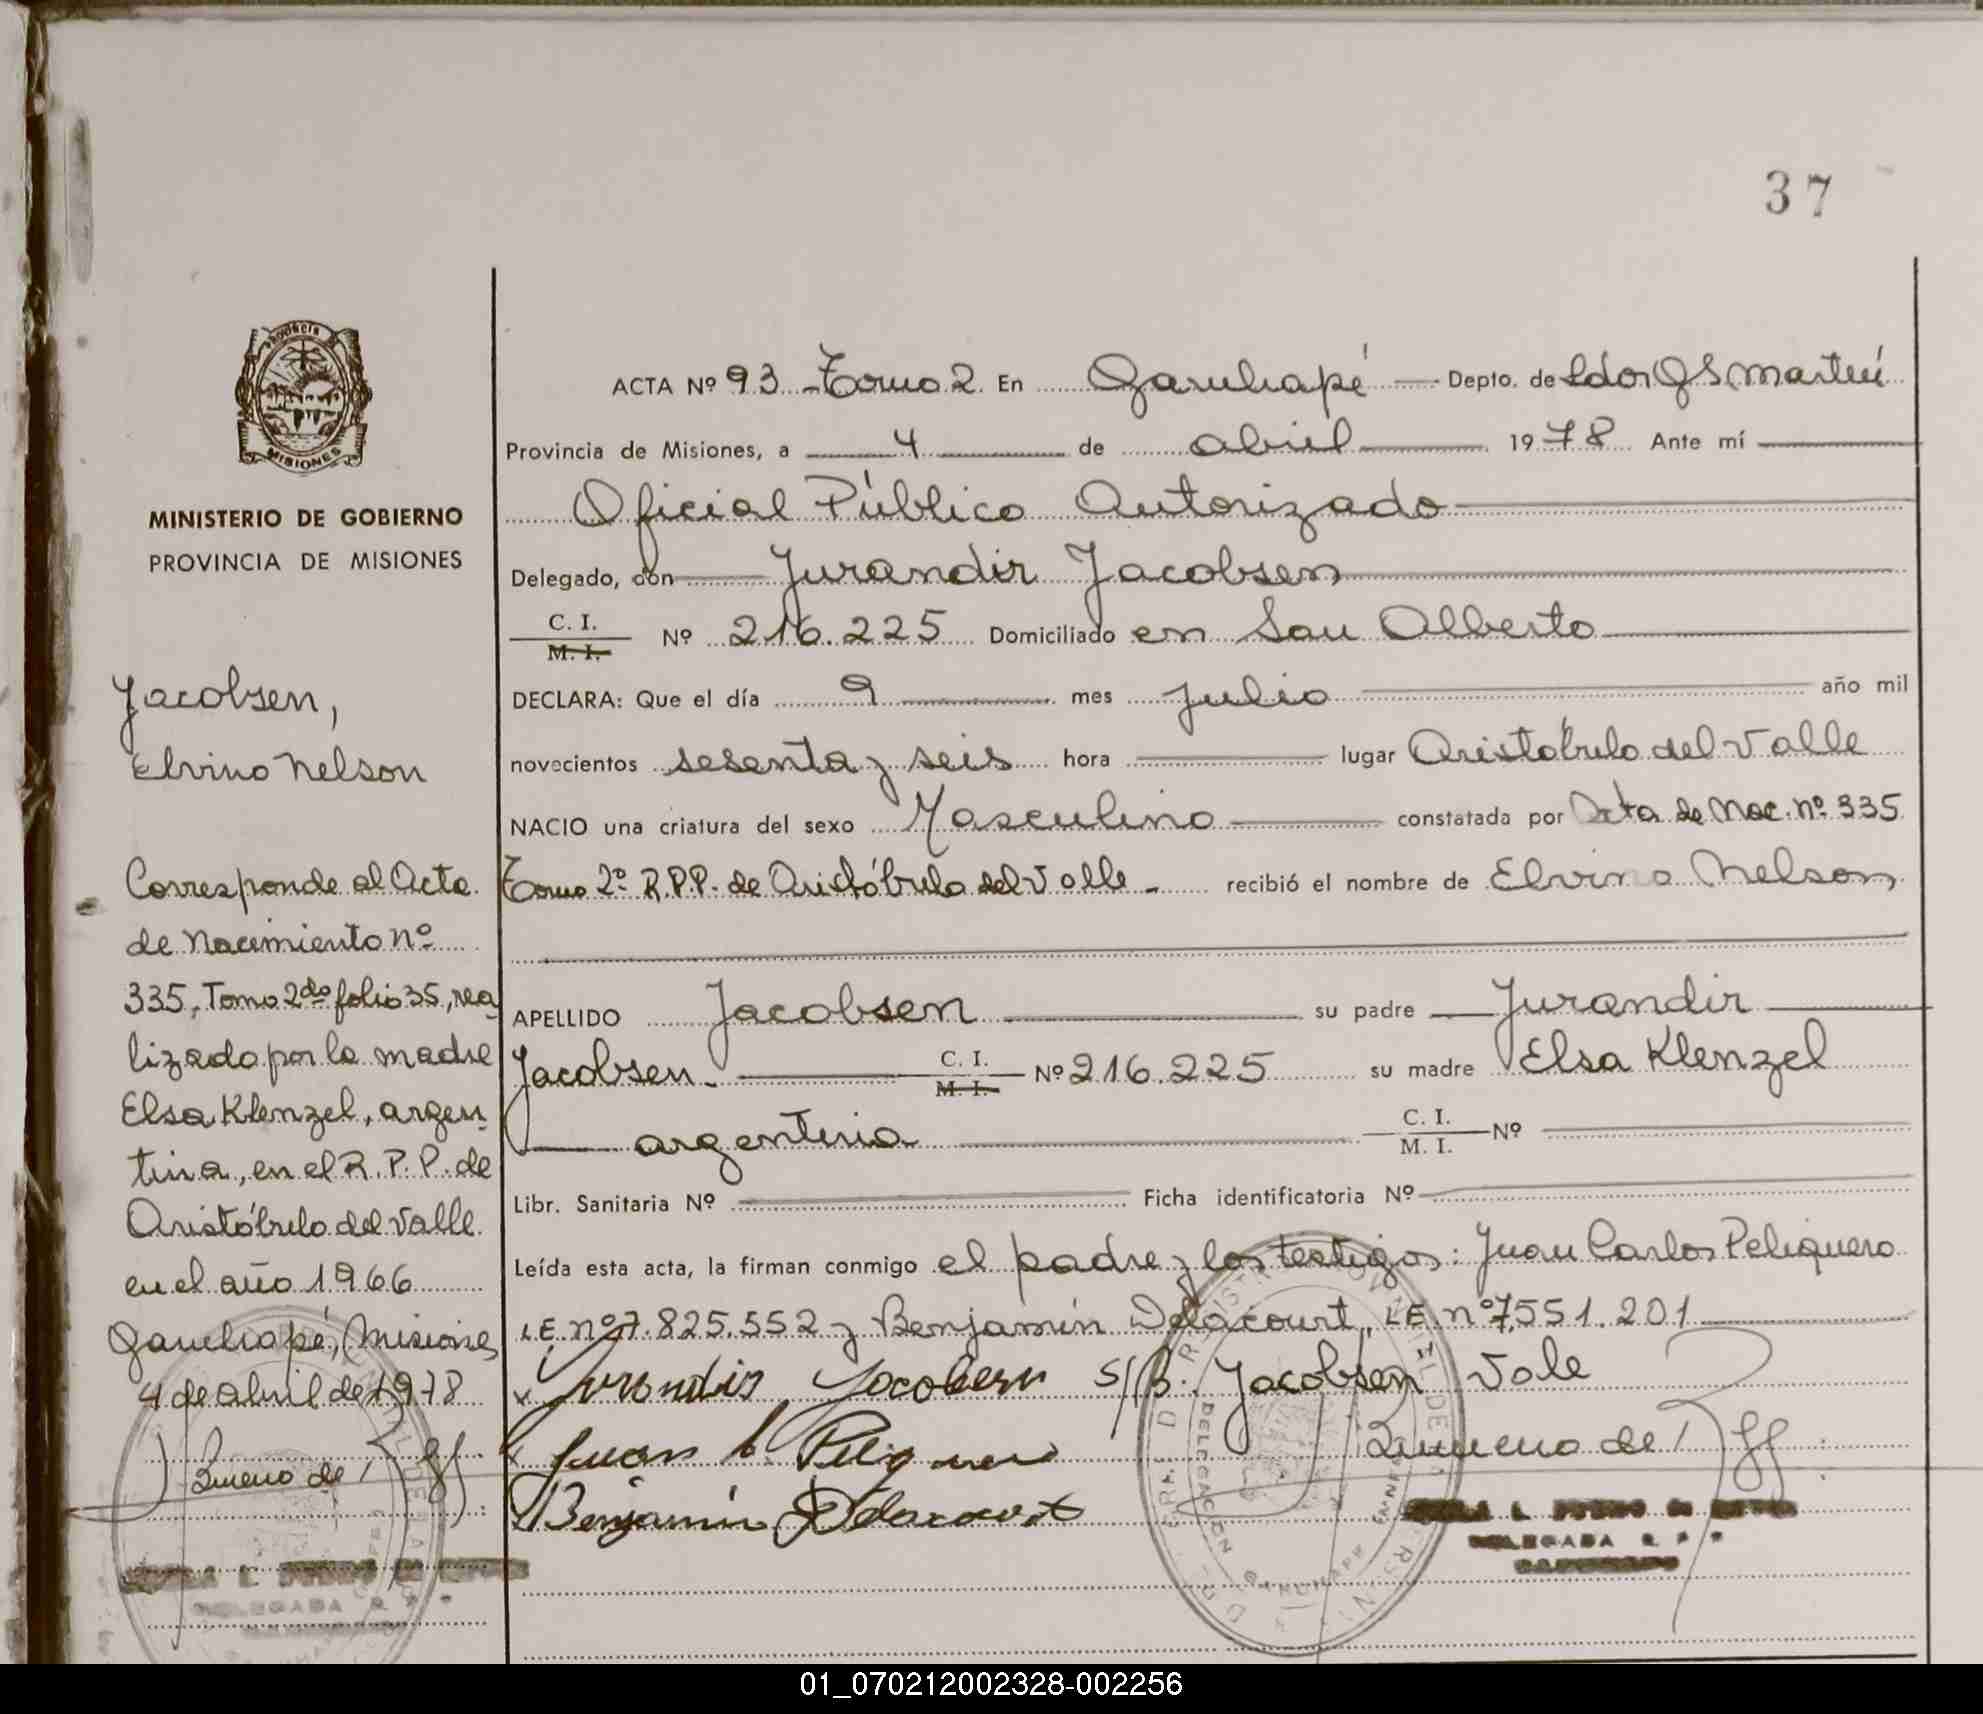 37
Provincia
MISIONES
MINISTERIO DE GOBIERNO
PROVINCIA DE MISIONES
Jacobsen,
Elvino Nelson
Corresponde al Acta
de Nacimiento nº
335, Tomo 2do folio 35, rea
lizado por la madre
Elsa Klenzel, argen-
tina, en el R.P.P. de
Aristóbulo del Valle
en el año 1966
Garuhapé, Misiones
4 de abril de 1978
DELEGADA R. P. P.
ACTA Nº 93 - Tomo 2. En Garuhapé — Depto. de Ldor G S Martín
Provincia de Misiones, a 4 de abril 1978 Ante mí
Oficial Público Autorizado
Delegado, con Jurandir Jacobsen
C. I.
M. I.
Nº 216.225 Domiciliado en San Alberto
DECLARA: Que el día 9 mes julio año mil
novecientos sesenta y seis hora lugar Aristóbulo del Valle
NACIO una criatura del sexo Masculino constatada por Acta de Nac. nº 335
Tomo 2º R.P.P. de Aristóbulo del Valle - recibió el nombre de Elvino Nelson
APELLIDO Jacobsen su padre Jurandir
Jacobsen. C. I. M. I. Nº 216.225 su madre Elsa Klenzel
argentina C. I. M. I. Nº
Libr. Sanitaria Nº Ficha identificatoria Nº
Leída esta acta, la firman conmigo el padre y los testigos: Juan Carlos Peliquero
L.E. nº 7.825.552 y Benjamín Delacourt, L.E. nº 7.551.201
x Jurandir Jacobsen S/B. Jacobsen Vale
Juan C. Peliquero
Benjamin Delacourt
DELEGADA R. P. P.
DELEGACIÓN GARUHAPE
01_070212002328-002256